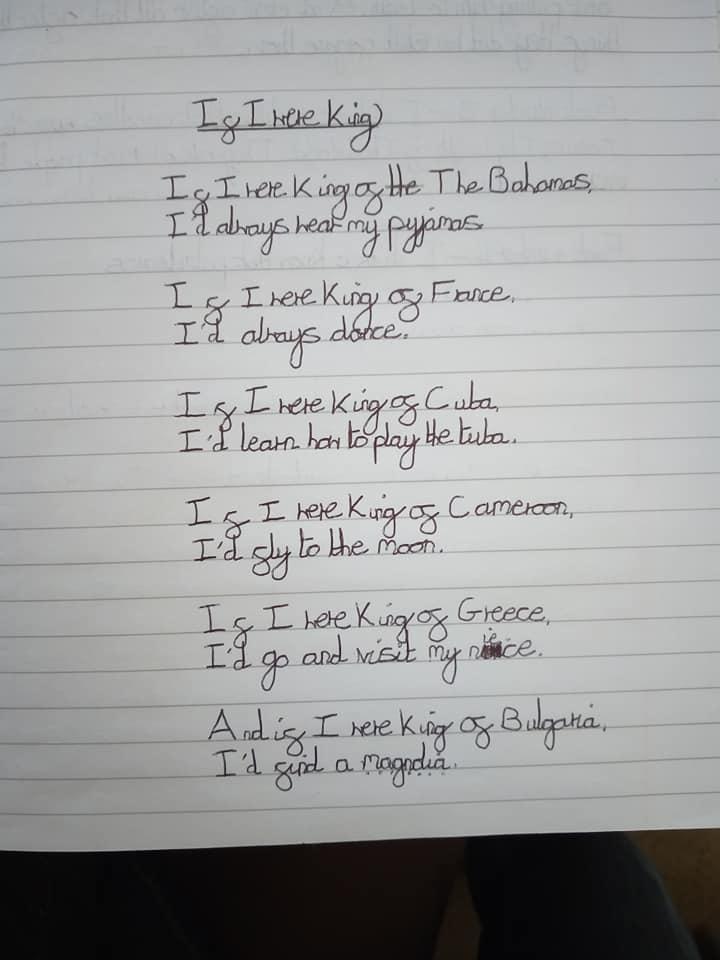 If I were King
If I were King of the The Bahamas,
I'd always wear my pyjamas.
If I were King of France,
I'd always dance.
If I were King of Cuba,
I'd learn how to play the tuba.
If I were King of Cameroon,
I'd fly to the moon.
If I were King of Greece,
I'd go and visit my niece.
And if I were King of Bulgaria,
I'd find a magnolia.